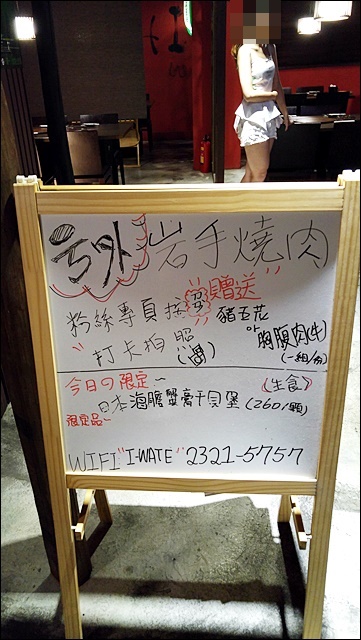 号外 岩手燒肉
粉絲專頁按讚 贈送
"打卡拍照 豬五花
or 胸腹肉(牛)
(一組/份)
今日の限定~ (生食)
日本海膽蟹膏干貝堡(260/顆)
限定品~
WIFI "I-WATE" 2321-5757